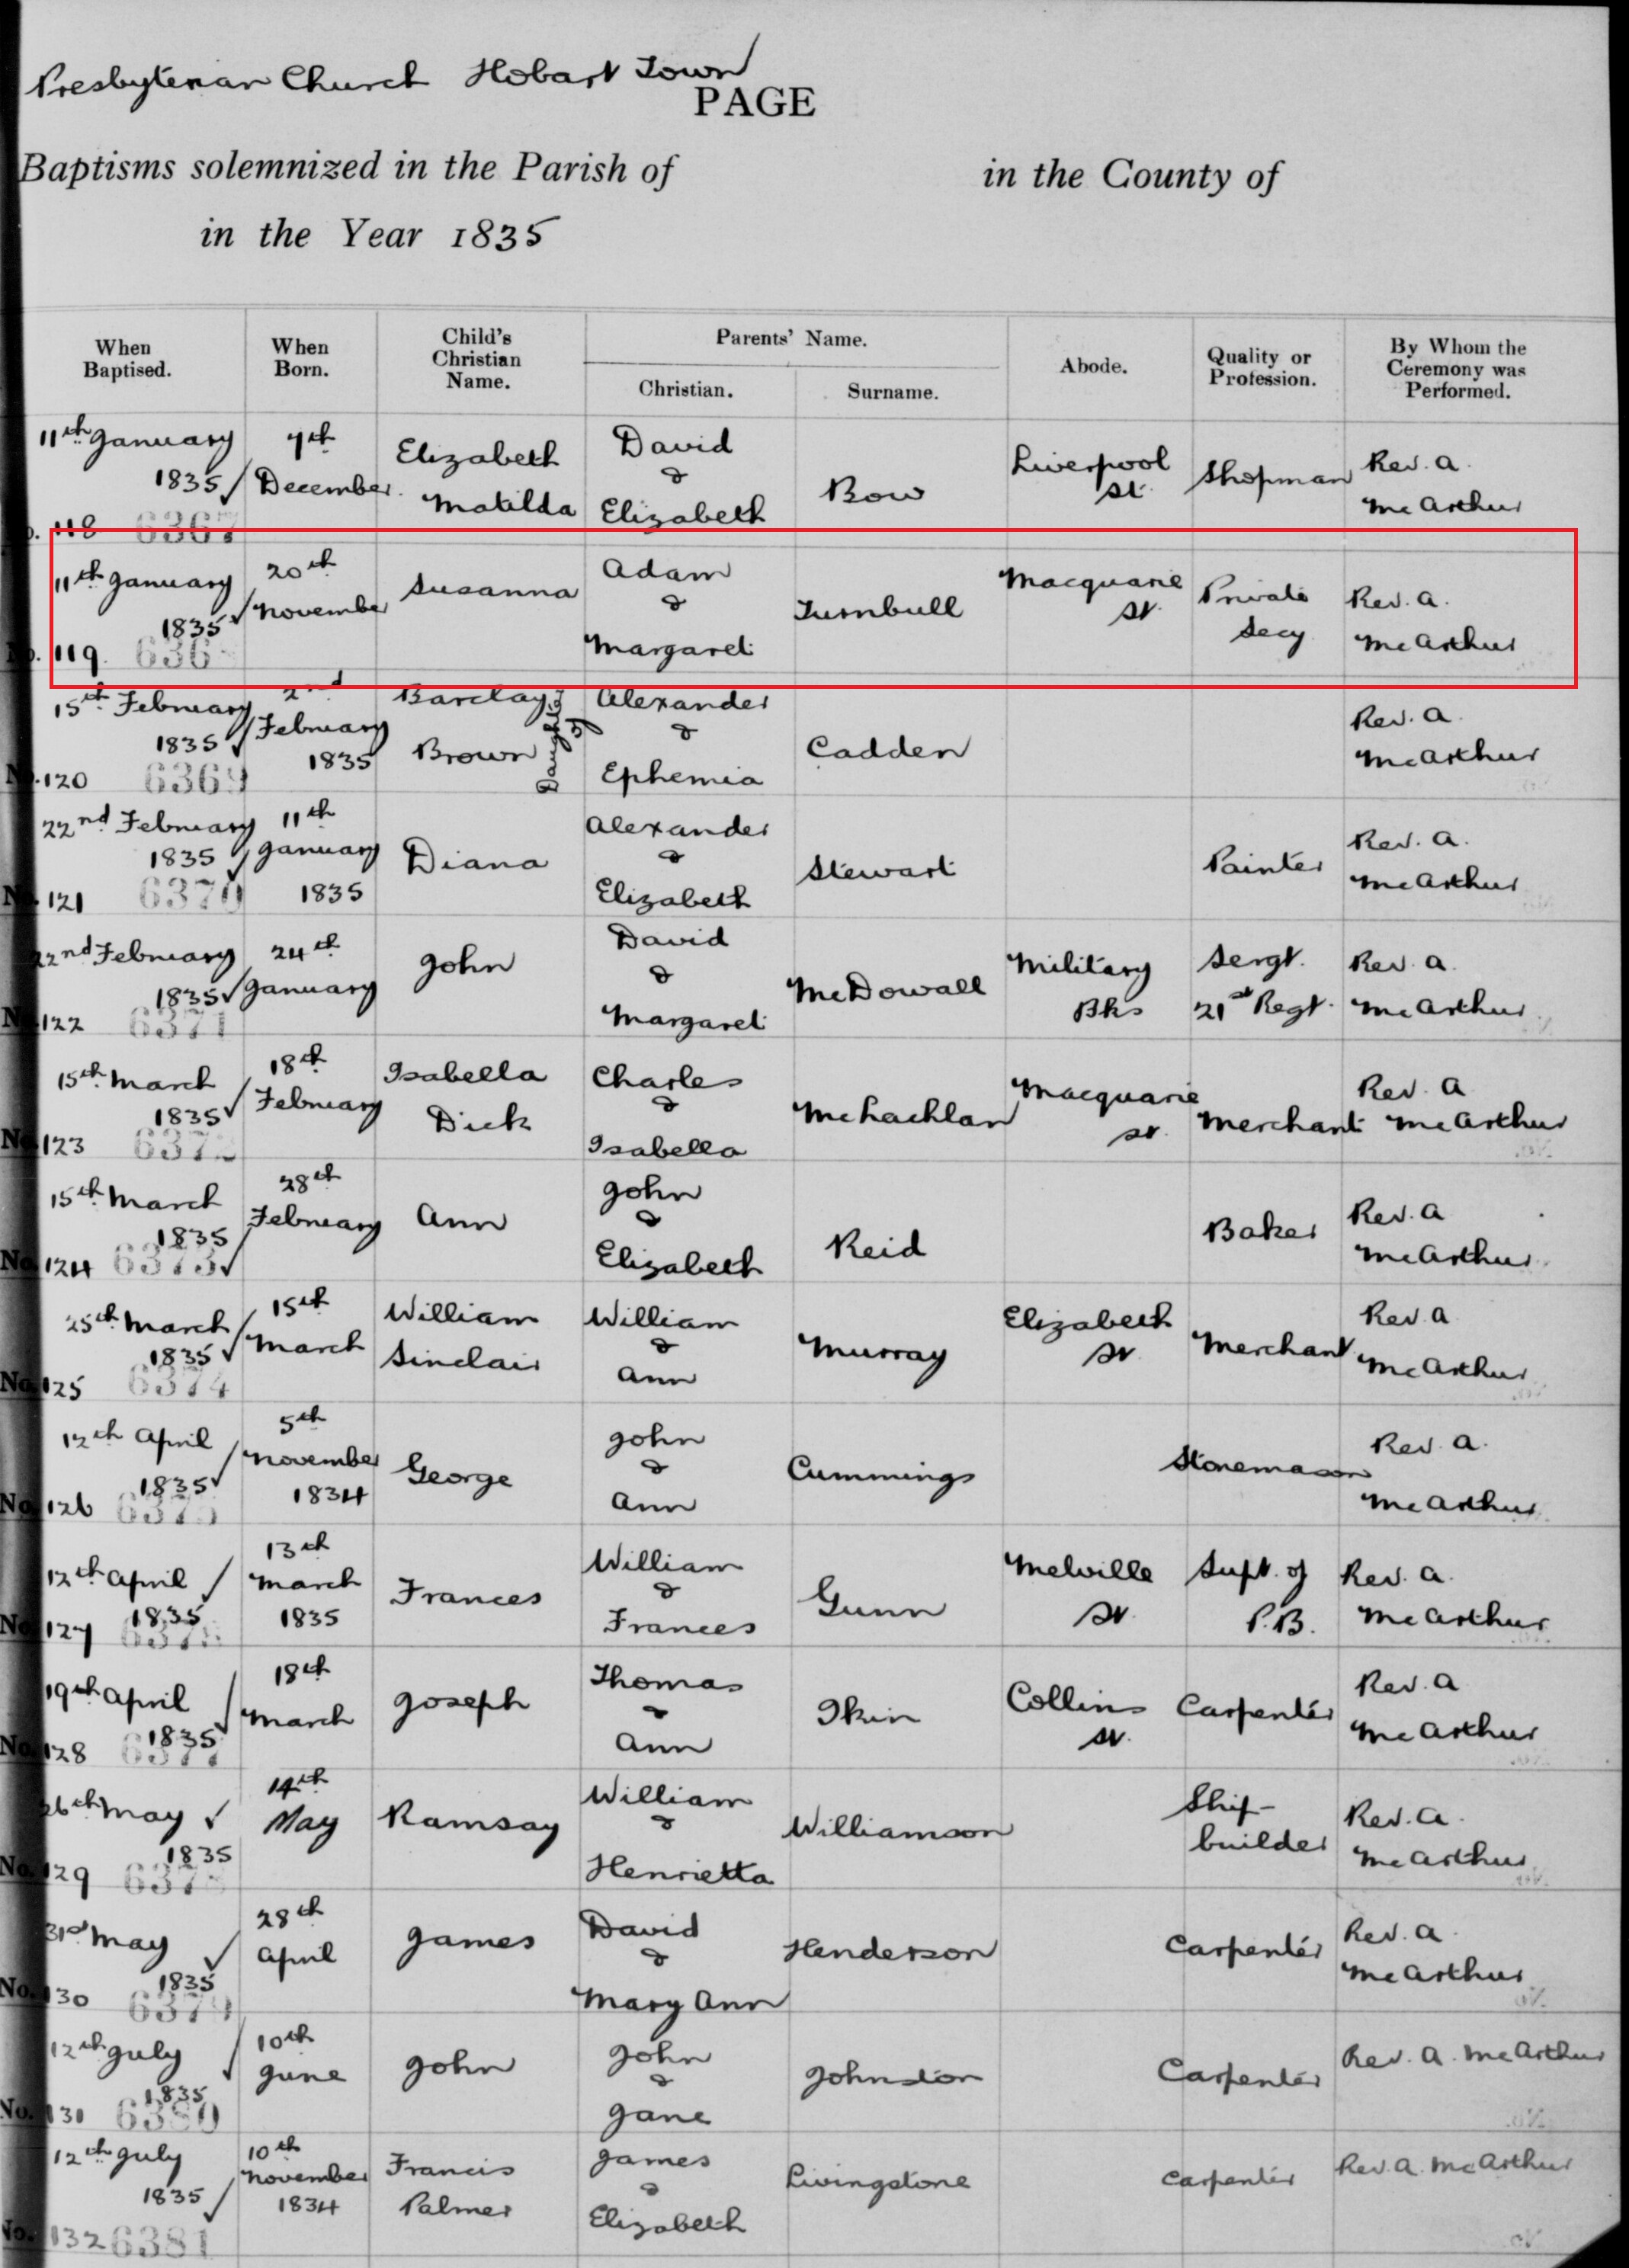 Presbyterian Church Hobart Town
PAGE
Baptisms solemnized in the Parish of in the County of
in the Year 1835
When Baptised. When Born. Child's Christian Name. Parents' Name. Christian. Surname. Abode. Quality or Profession. By Whom the Ceremony was Performed.
11th January 7th Elizabeth David Liverpool Shopman Rev. A.
1835 December Matilda & Bow St. McArthur
118 6367 Elizabeth
11th January 20th Susanna Adam Macquarie Private Rev. A.
1835 November & Turnbull St. Secy McArthur
No. 119 636 Margaret
15th February 2nd Barclay Daughter of Alexander Rev. A
1835 February Brown & Cadden McArthur
No. 120 6369 1835 Ephemia
22nd February 11th Alexander Rev. A.
1835 January Diana & Stewart Painter McArthur
No. 121 6370 1835 Elizabeth
22nd February 24th John David Military Sergt. Rev. A
1835 January & McDowall Bks 21st Regt. McArthur
No. 122 6371 Margaret
15th March 18th Isabella Charles Macquarie Rev. A
1835 February Dick & McLachlan St. Merchant McArthur
No. 123 6372 Isabella
15th March 28th John Rev. A
1835 February Ann & Reid Baker McArthur
No. 124 6373 Elizabeth
25th March 15th William William Elizabeth Rev. A
1835 March Sinclair & Murray St. Merchant McArthur
No. 125 6374 Ann
12th April 5th John Rev. A.
1835 November George & Cummings Stonemason McArthur
No. 126 6375 1834 Ann
12th April 13th William Melville Supt. of Rev. A.
1835 March Frances & Gunn St. P.B. McArthur
No. 127 637 1835 Frances
19th April 18th Joseph Thomas Collins Carpenter Rev. A
1835 March & Ikin St. McArthur
No. 128 6377 Ann
26th May 14th Ramsay William Ship- Rev. A.
1835 May & Williamson builder McArthur
No. 129 637 Henrietta
31st May 28th James David Carpenter Rev. A.
1835 April & Henderson McArthur
No. 130 6379 Mary Ann
12th July 10th John John Carpenter Rev. A. McArthur
1835 June & Johnston
No. 131 6380 Jane
12th July 10th Francis James Carpenter Rev. A. McArthur
1835 November Palmer & Livingstone
No. 132 6381 1834 Elizabeth